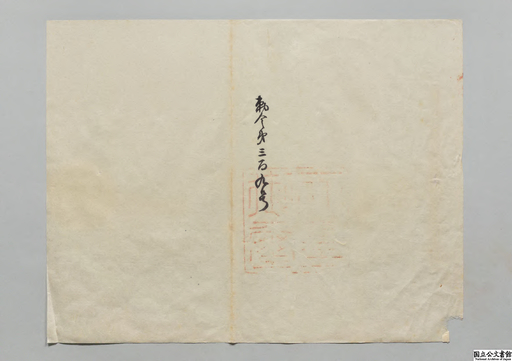 勅令第三百九号
国立公文書館
National Archives of Japan